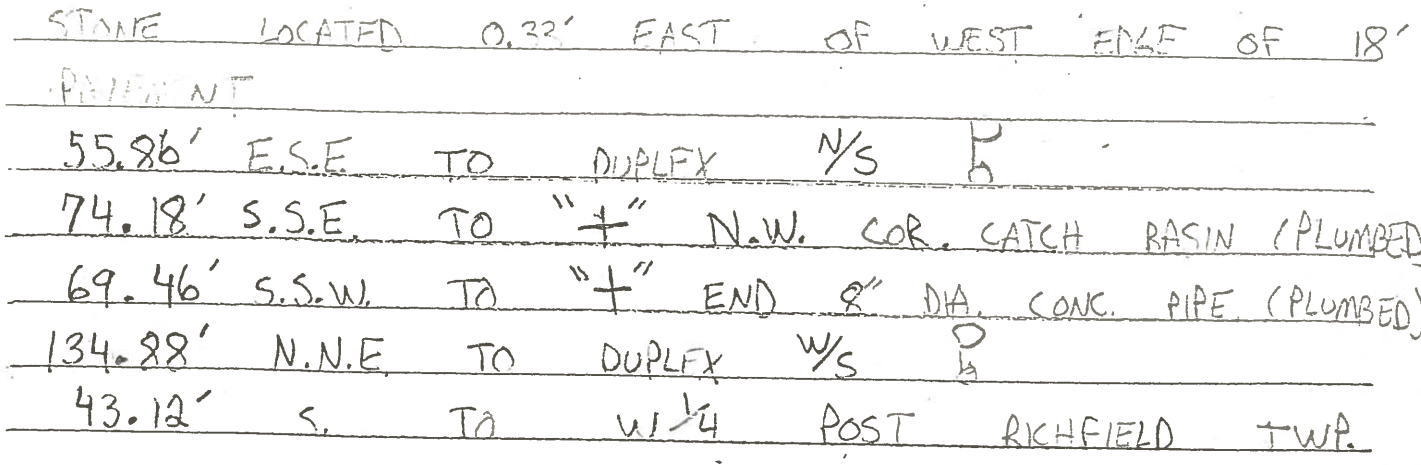 STONE LOCATED 0.33' EAST OF WEST EDGE OF 18'
PAVEMENT
55.86' E.S.E TO DUPLEX N/S
74.18' S.S.E. TO "+" N.W. COR. CATCH BASIN (PLUMBED)
69.46' S.S.W. TO "+" END 8" DIA. CONC. PIPE (PLUMBED)
134.88' N.N.E TO DUPLEX W/S
43.12' S. TO W 1/4 POST RICHFIELD TWP.